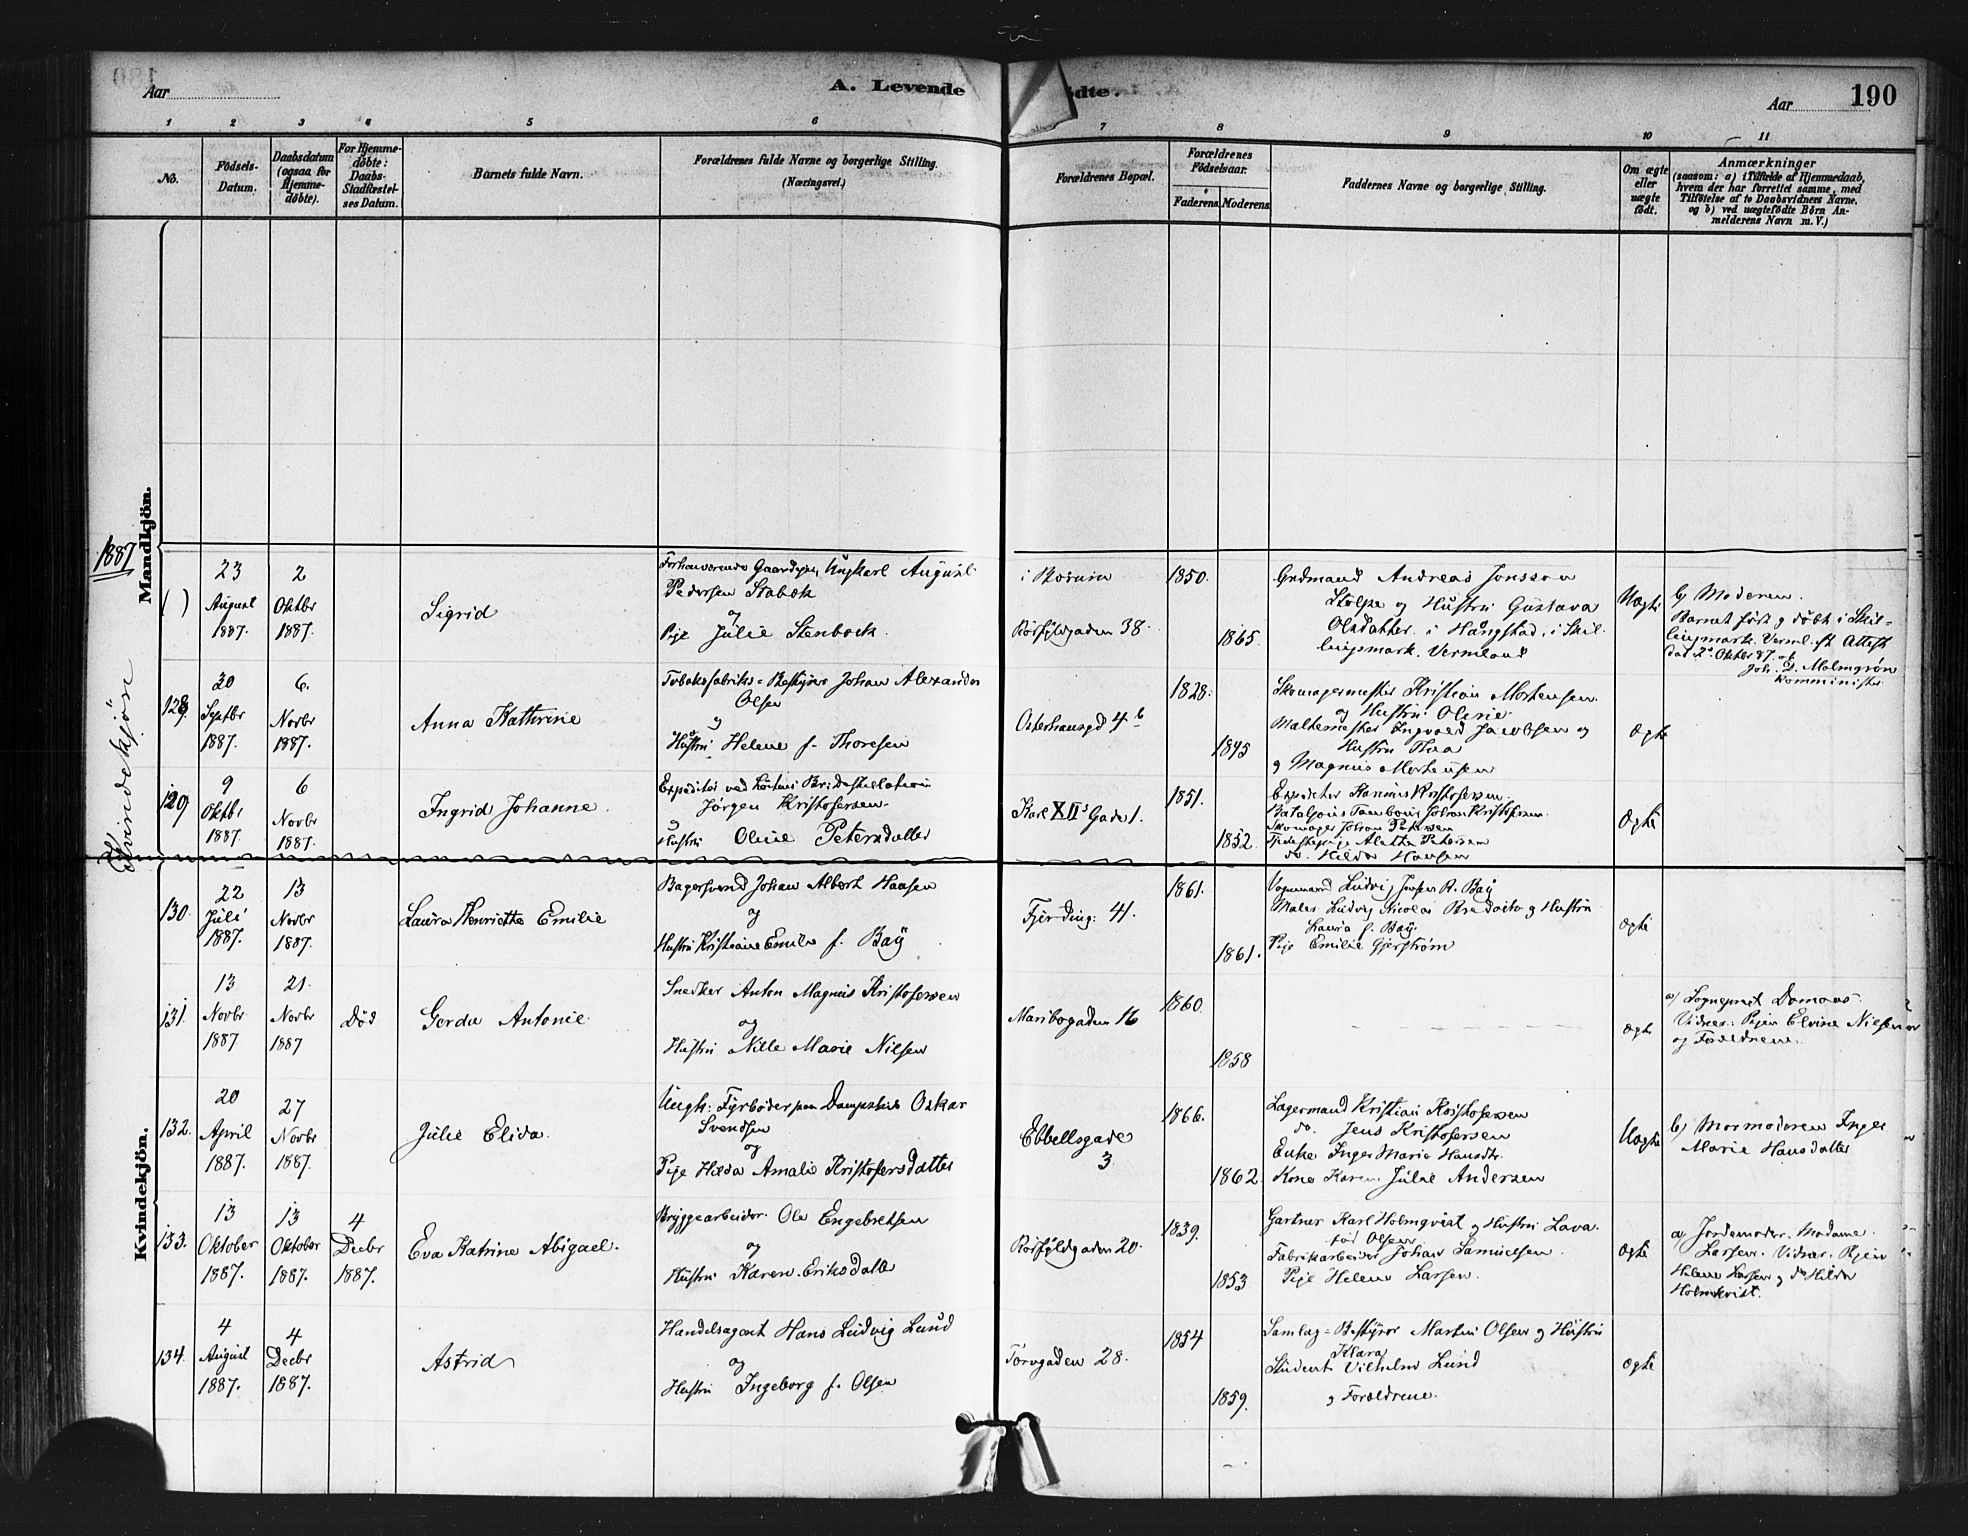 Aar
A. Levende
ödte.
Aar
190
1 2 3 4 5 6 7 8 9 10 11
No.
Födsels-
Datum.
Daabsdatum
(ogsaa for
Hjemme-
döbte).
For Hjemme-
döbte:
Daabs-
Stadfæstel-
ses Datum.
Barnets fulde Navn.
Forældrenes fulde Navne og borgerlige Stilling.
(Næringsvei.)
Forældrenes Bopæl.
Forældrenes
Födselsaar.
Faderens.
Moderens.
Faddernes Navne og borgerlige Stilling.
Om ægte
eller
uægte
födt.
Anmærkninger
(saasom: a) i Tilfælde af Hjemmedaab,
hvem der har forrettet samme, med
Tilföielse af to Daabsvidners Navne,
og b) ved uægtefödte Börn An-
melderens Navn m. V.)
1887
Mandkjön.
Kvindekjön
Kvindekjön.
( )
23
August
1887.
2
Oktbr
1887.
Sigrid
Forhenværende Ungkarl August
Pedersen Stabæk
og
Pige Julie Stenbock.
38.
1850.
1865.
Grdmand Andreas Jonsson
Stolpe og Hustru Gustava
Olsdatter i Hångstad, i Skil-
lingsmark. Vermland
Uægte
b) Moderen.
Barnet født og döbt i Skil-
lingsmark. Verml. Attest
Oktbr 87. af
Joh. D. Malmgrön
Komminister.
128.
30
Septbr
1887.
6.
Novbr
1887.
Anna Kathrine
Tobaksfabriks-Bestyrer Johan Alexander
Olsen
og
Hustru Helene f. Thoresen
Osterhausgd 4 b
1828.
1845
Skomagermester Kristian Mortensen
og Hustru Oline
Ingvald Jacobsen og
Hustru Thea
og Magnus Mortensen
Ægte
129
9
Oktbr
1887.
6
Novbr
1887.
Ingrid Johanne.
Expeditör ved
Jørgen Kristofersen
og
Hustru Oline Petersdatter
Karl XII's Gade 1.
1851.
1852.
Expeditør Rasmus Kristofersen.
Bataljons Tambour Johan Kristofersen
Skomager Johan Petersen
Tjenestepige Alethe Petersen
do. Hilda Hansen
Ægte
130.
22
Juli
1887.
13
Novbr
1887.
Laura Henriette Emilie
Bagersvend Johan Albert Haasen
og
Hustru Kristiane Emilie f. Baÿ
Fjerding: 41.
1861.
1861.
Vognmand Ludvig Baÿ
Maler Ludvig Nicolai og Hustru
Laura f. Baÿ.
Pige Emilie Gjerstrøm
Ægte
131.
13
Novbr
1887
21.
Novbr
1887
Död
Gerda Antonie.
Snedker Anton Magnus Kristofersen
og
Hustru Nille Marie Nilsen
Maribogaden 16
1860.
1858
Ægte
a) Sogneprest Domaas
Vidner: Pigen Elvine Nilsen
og Forældrene.
132.
20
April
1887.
27
Novbr
1887.
Julie Elida.
Ungk: Fyrböder paa Dampskib Oskar
Svendsen
og
Pige Hilda Amalie Kristofersdatter
Ebbellsgade
3
1866.
1862
Lagermand Kristian Kristofersen
do. Jens Kristofersen
Enke Inger Marie Hansdtr.
Kone Karen Julie Andersen
Uægte
b) Mormoderen Inger
Marie Hansdatter
133.
13
Oktober
1887.
13
Oktober
1887.
4
Decbr
1887.
Eva Katrine Abigael.
Bryggearbeider Ole Engebretsen
og
Hustru Karen Eriksdatter
20.
1839.
1853
Gartner Karl Holmqvist og Hustru Lava
föd Olsen
Fabrikarbeider Johan Samuelsen.
Pige Helene Larsen.
Ægte
a) Jordemoder Madame
Larsen. Vidner. Pigen
Helene Larsen og do Hilda
Holmkvist.
134.
4
August
1887.
4
Decbr
1887.
Astrid
Handelsagent Hans Ludvig Lund
og
Hustru Ingeborg f. Olsen
Torvgaden 28.
1854
1859.
Samlag-Bestyrer Martin Olsen og Hustru
Klara
Student Vilhelm Lund
og Forældrene.
Ægte